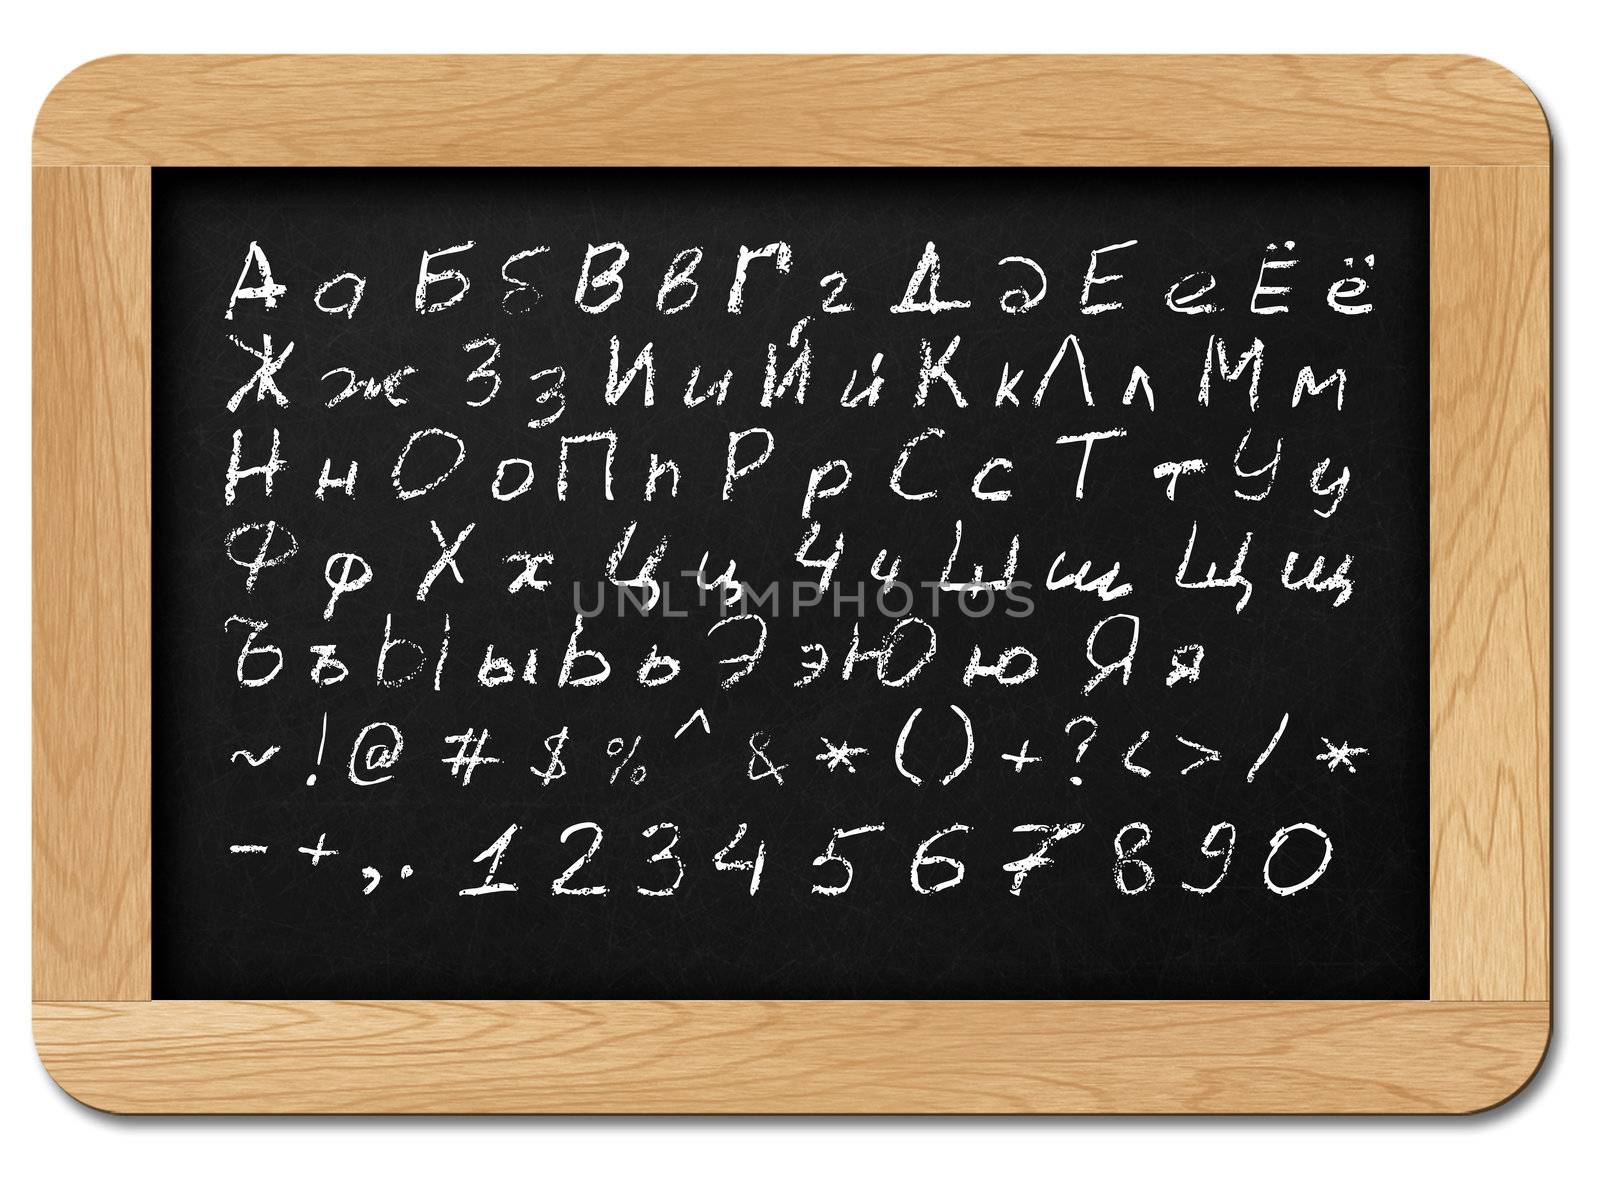 А а Б б В в Г г Д д Е е Ё ё
Ж ж З з И и Й й К к Л л М м
Н н О о П п Р р С с Т т У у
Ф ф Х х Ц ц Ч ч Ш ш Щ щ
Ъ ъ Ы ы Ь ь Э э Ю ю Я я
~ ! @ # $ % ^ & * ( ) + ? < > / *
- + , . 1 2 3 4 5 6 7 8 9 0
UNLIMPHOTOS